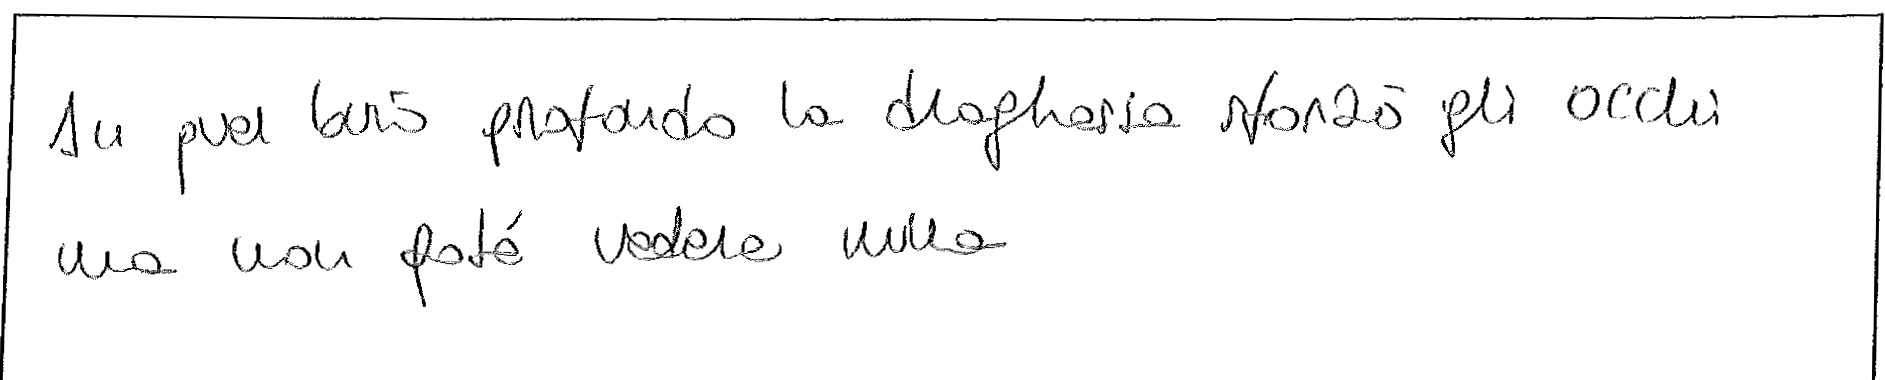 In quel burrò profondo la draghessa sforzò gli occhi
ma non poté vedere nulla